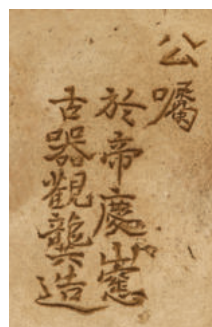 公囑
於帝慶
古器觀龔造